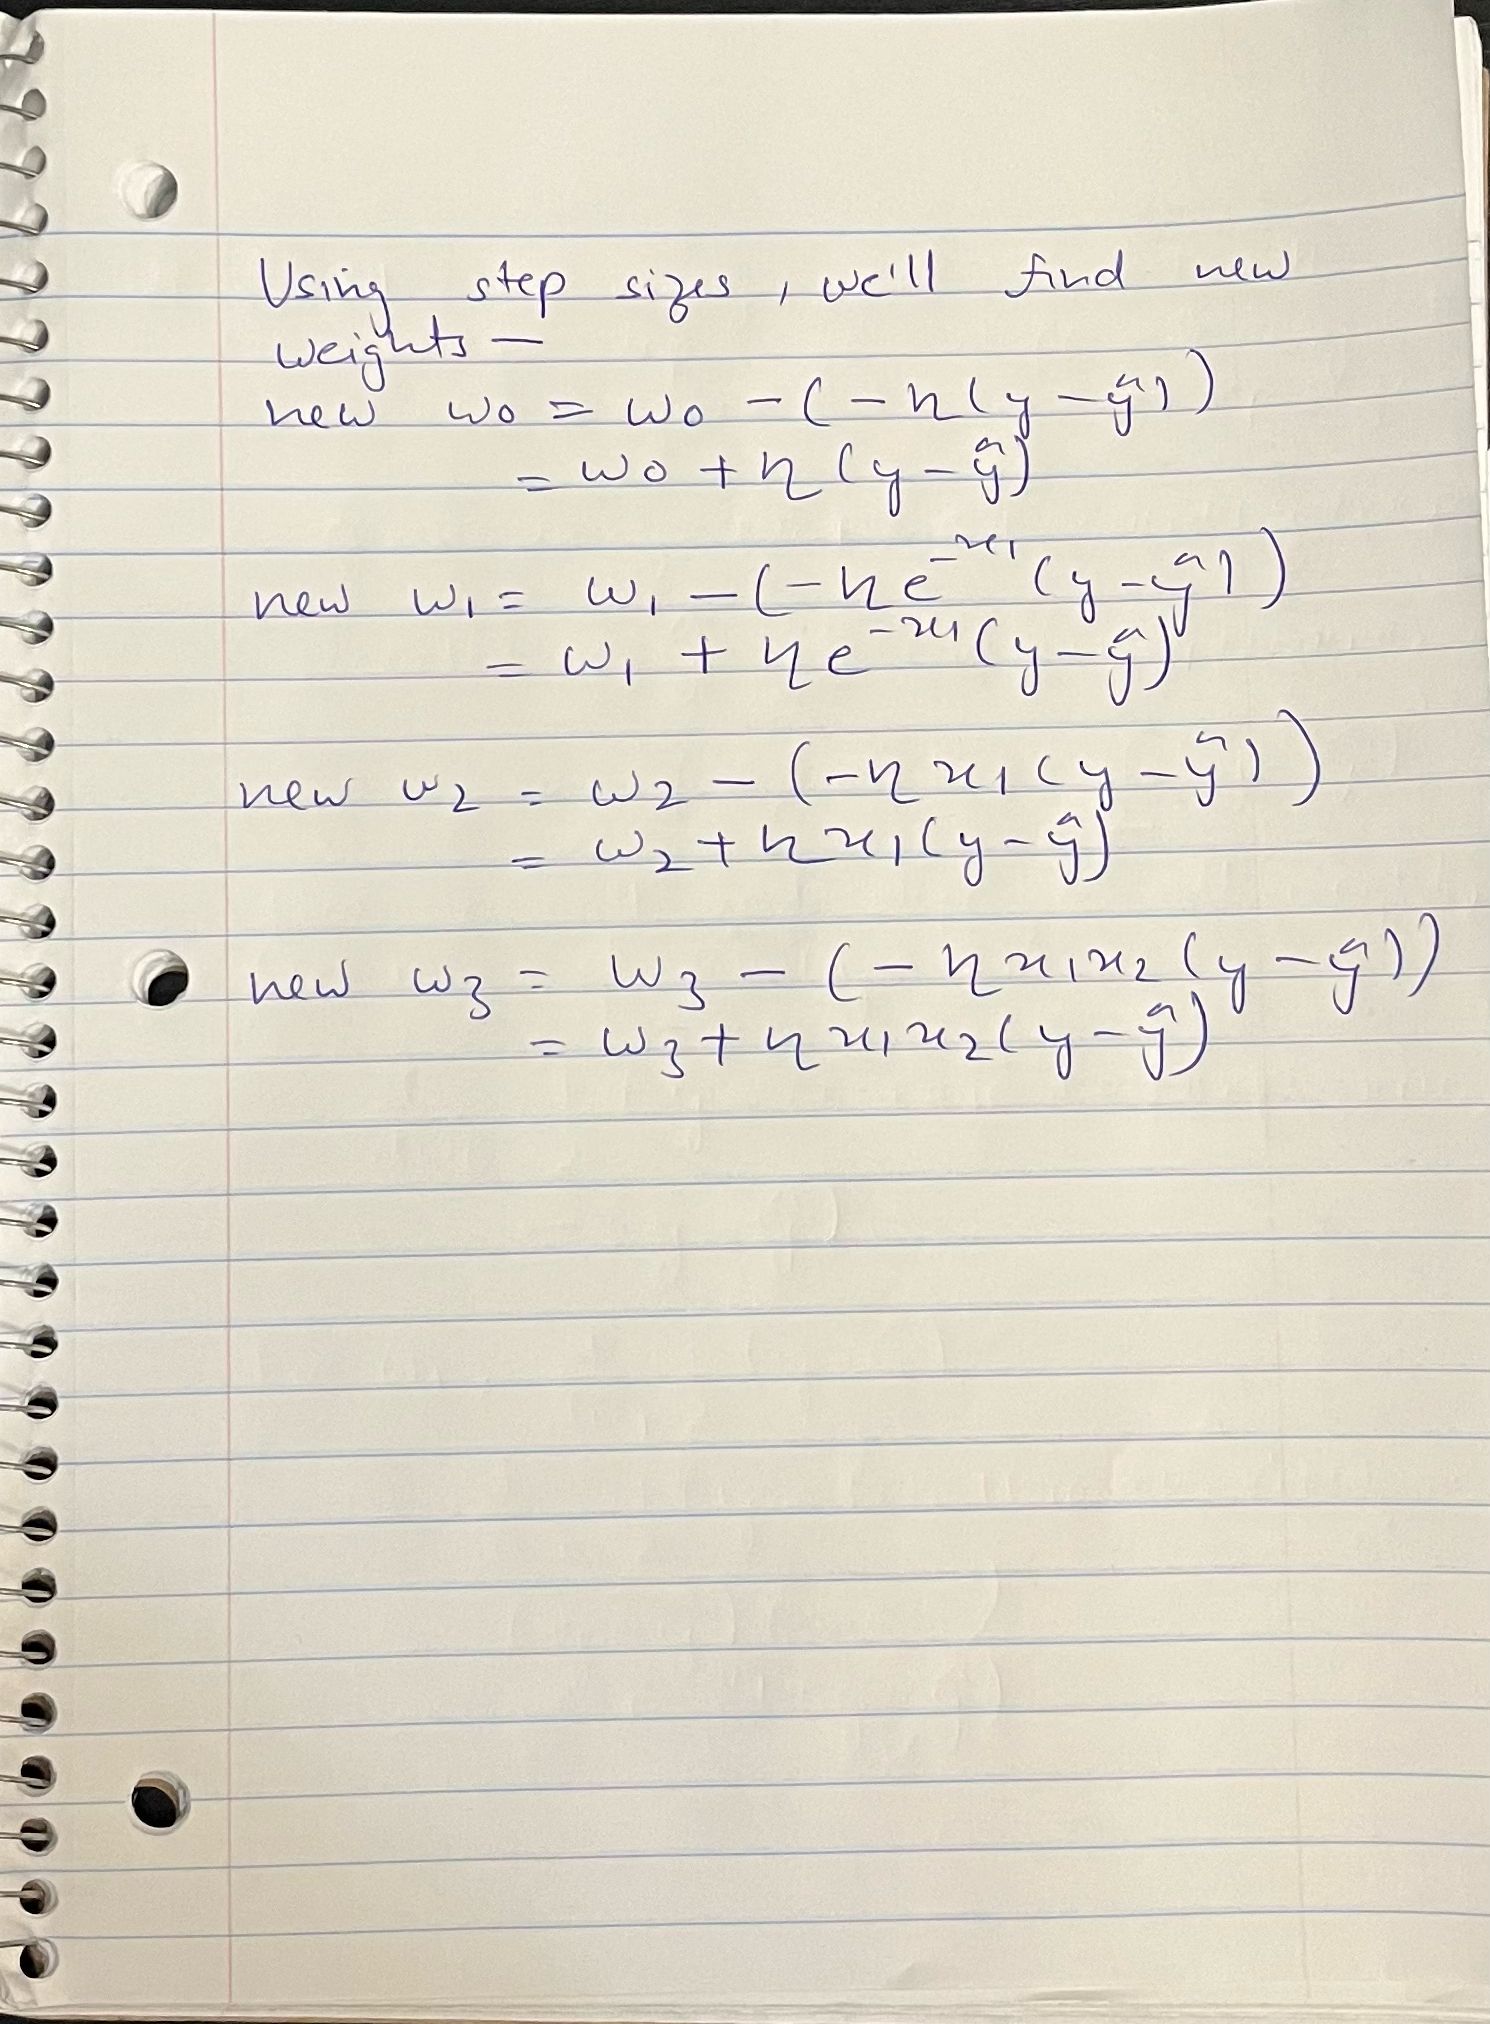 Using step sizes, we'll find new
weights —
new w0 = w0 - (-η(y - ŷ))
= w0 + η(y - ŷ)
new w₁ = w₁ - (-ηe^(-x₁)(y - ŷ))
= w₁ + ηe^(-x₁)(y - ŷ)
new w₂ = w₂ - (-ηx₁(y - ŷ))
= w₂ + ηx₁(y - ŷ)
new w₃ = w₃ - (-ηx₁x₂(y - ŷ))
= w₃ + ηx₁x₂(y - ŷ)